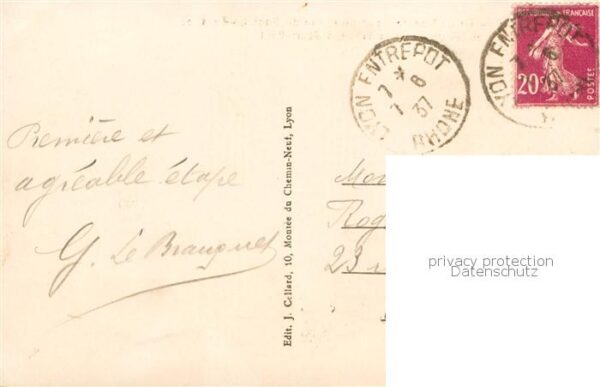 LYON ENTREPOT
7 *
7 8
37
RHONE
LYON ENTREPOT
FRANÇAISE
20
POSTES
Première et
agréable étape
G. Le
Edit. J. Cellard, 10, Montée du Chemin-Neuf, Lyon
Mon
Rog
23
privacy protection
Datenschutz